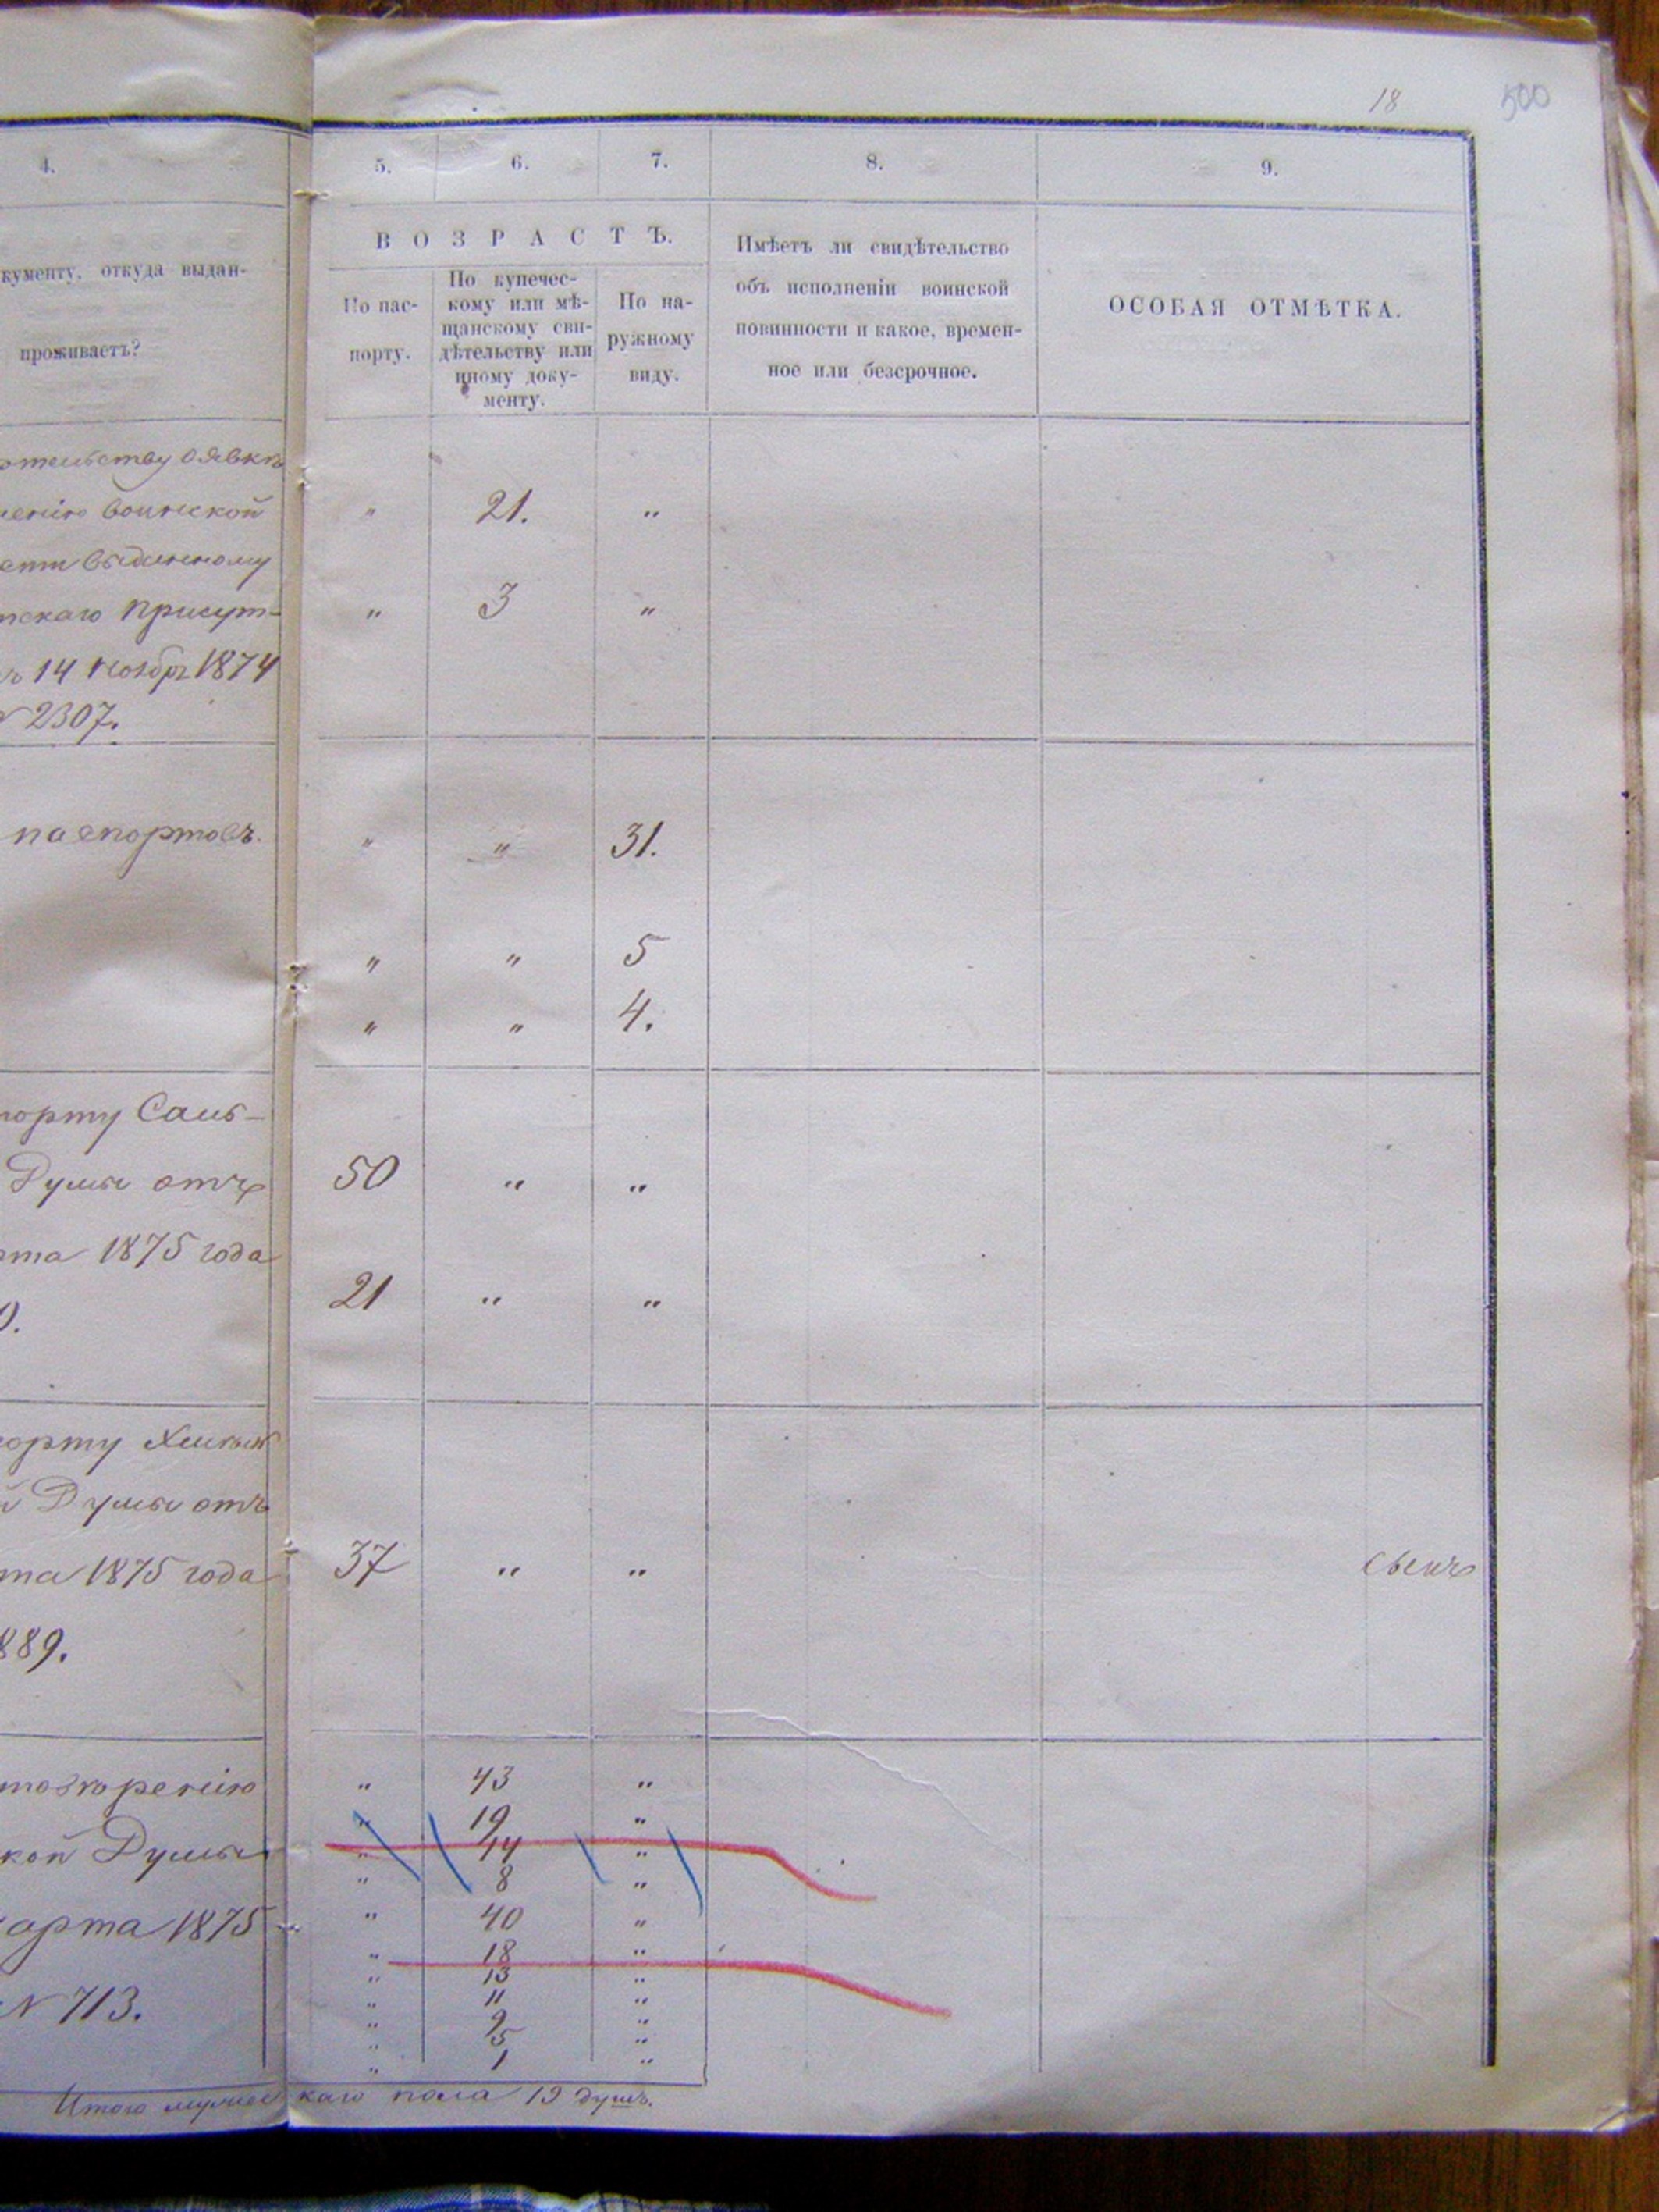 18 500
4. 5. 6. 7. 8. 9.
ВОЗРАСТЪ.
кументу, откуда выдан-
проживаетъ?
По пас-
порту.
По купечес-
кому или мѣ-
щанскому сви-
дѣтельству или
иному доку-
менту.
По на-
ружному
виду.
Имѣетъ ли свидѣтельство
объ исполненіи воинской
повинности и какое, времен-
ное или безсрочное.
ОСОБАЯ ОТМѢТКА.
тельству о явкѣ
ченію воинской
" 21. "
сти выданному
тскаго присут-
" 3 "
14 ноябр 1874
№ 2307.
паспортовъ.
" " 31.
" " 5
" " 4.
порту Саль-
Думы отъ
50 " "
рта 1875 года
21 " "
0.
порту
й Думы отъ
та 1875 года
37 " "
889.
" 43 "
" 19 "
кой Думы
" 14 "
" 8 "
арта 1875
" 40 "
" 18 "
" 13 "
№ 713.
" 11 "
" 9 "
" 5 "
" 1 "
Итого мужескаго пола 19 душъ.